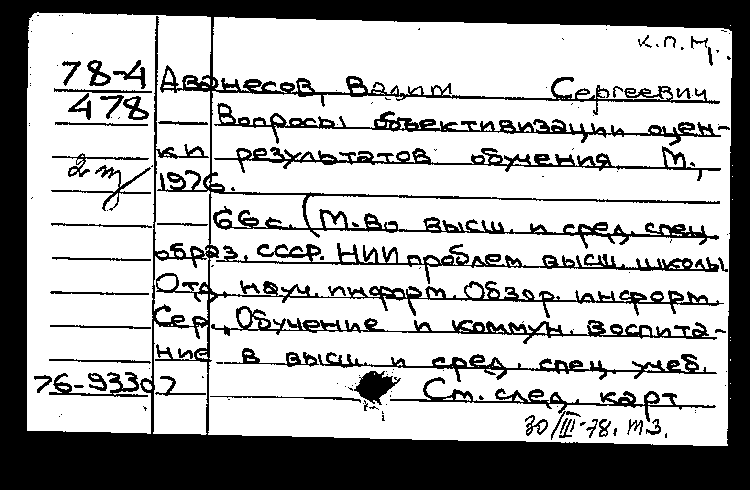 К.П.М.
78-4 Аванесов, Вадим Сергеевич
478 Вопросы объективизации оцен-
ки результатов обучения. М.,
1976.
66с. (М-во высш. и сред. спец.
образ. СССР. НИИ проблем высш. школы.
Отд. науч. информ. Обзор. информ.
Сер., Обучение и коммун. воспита-
ние в высш. и сред. спец. учеб.
76-93307 См. след. карт.
30/III-78. тз.